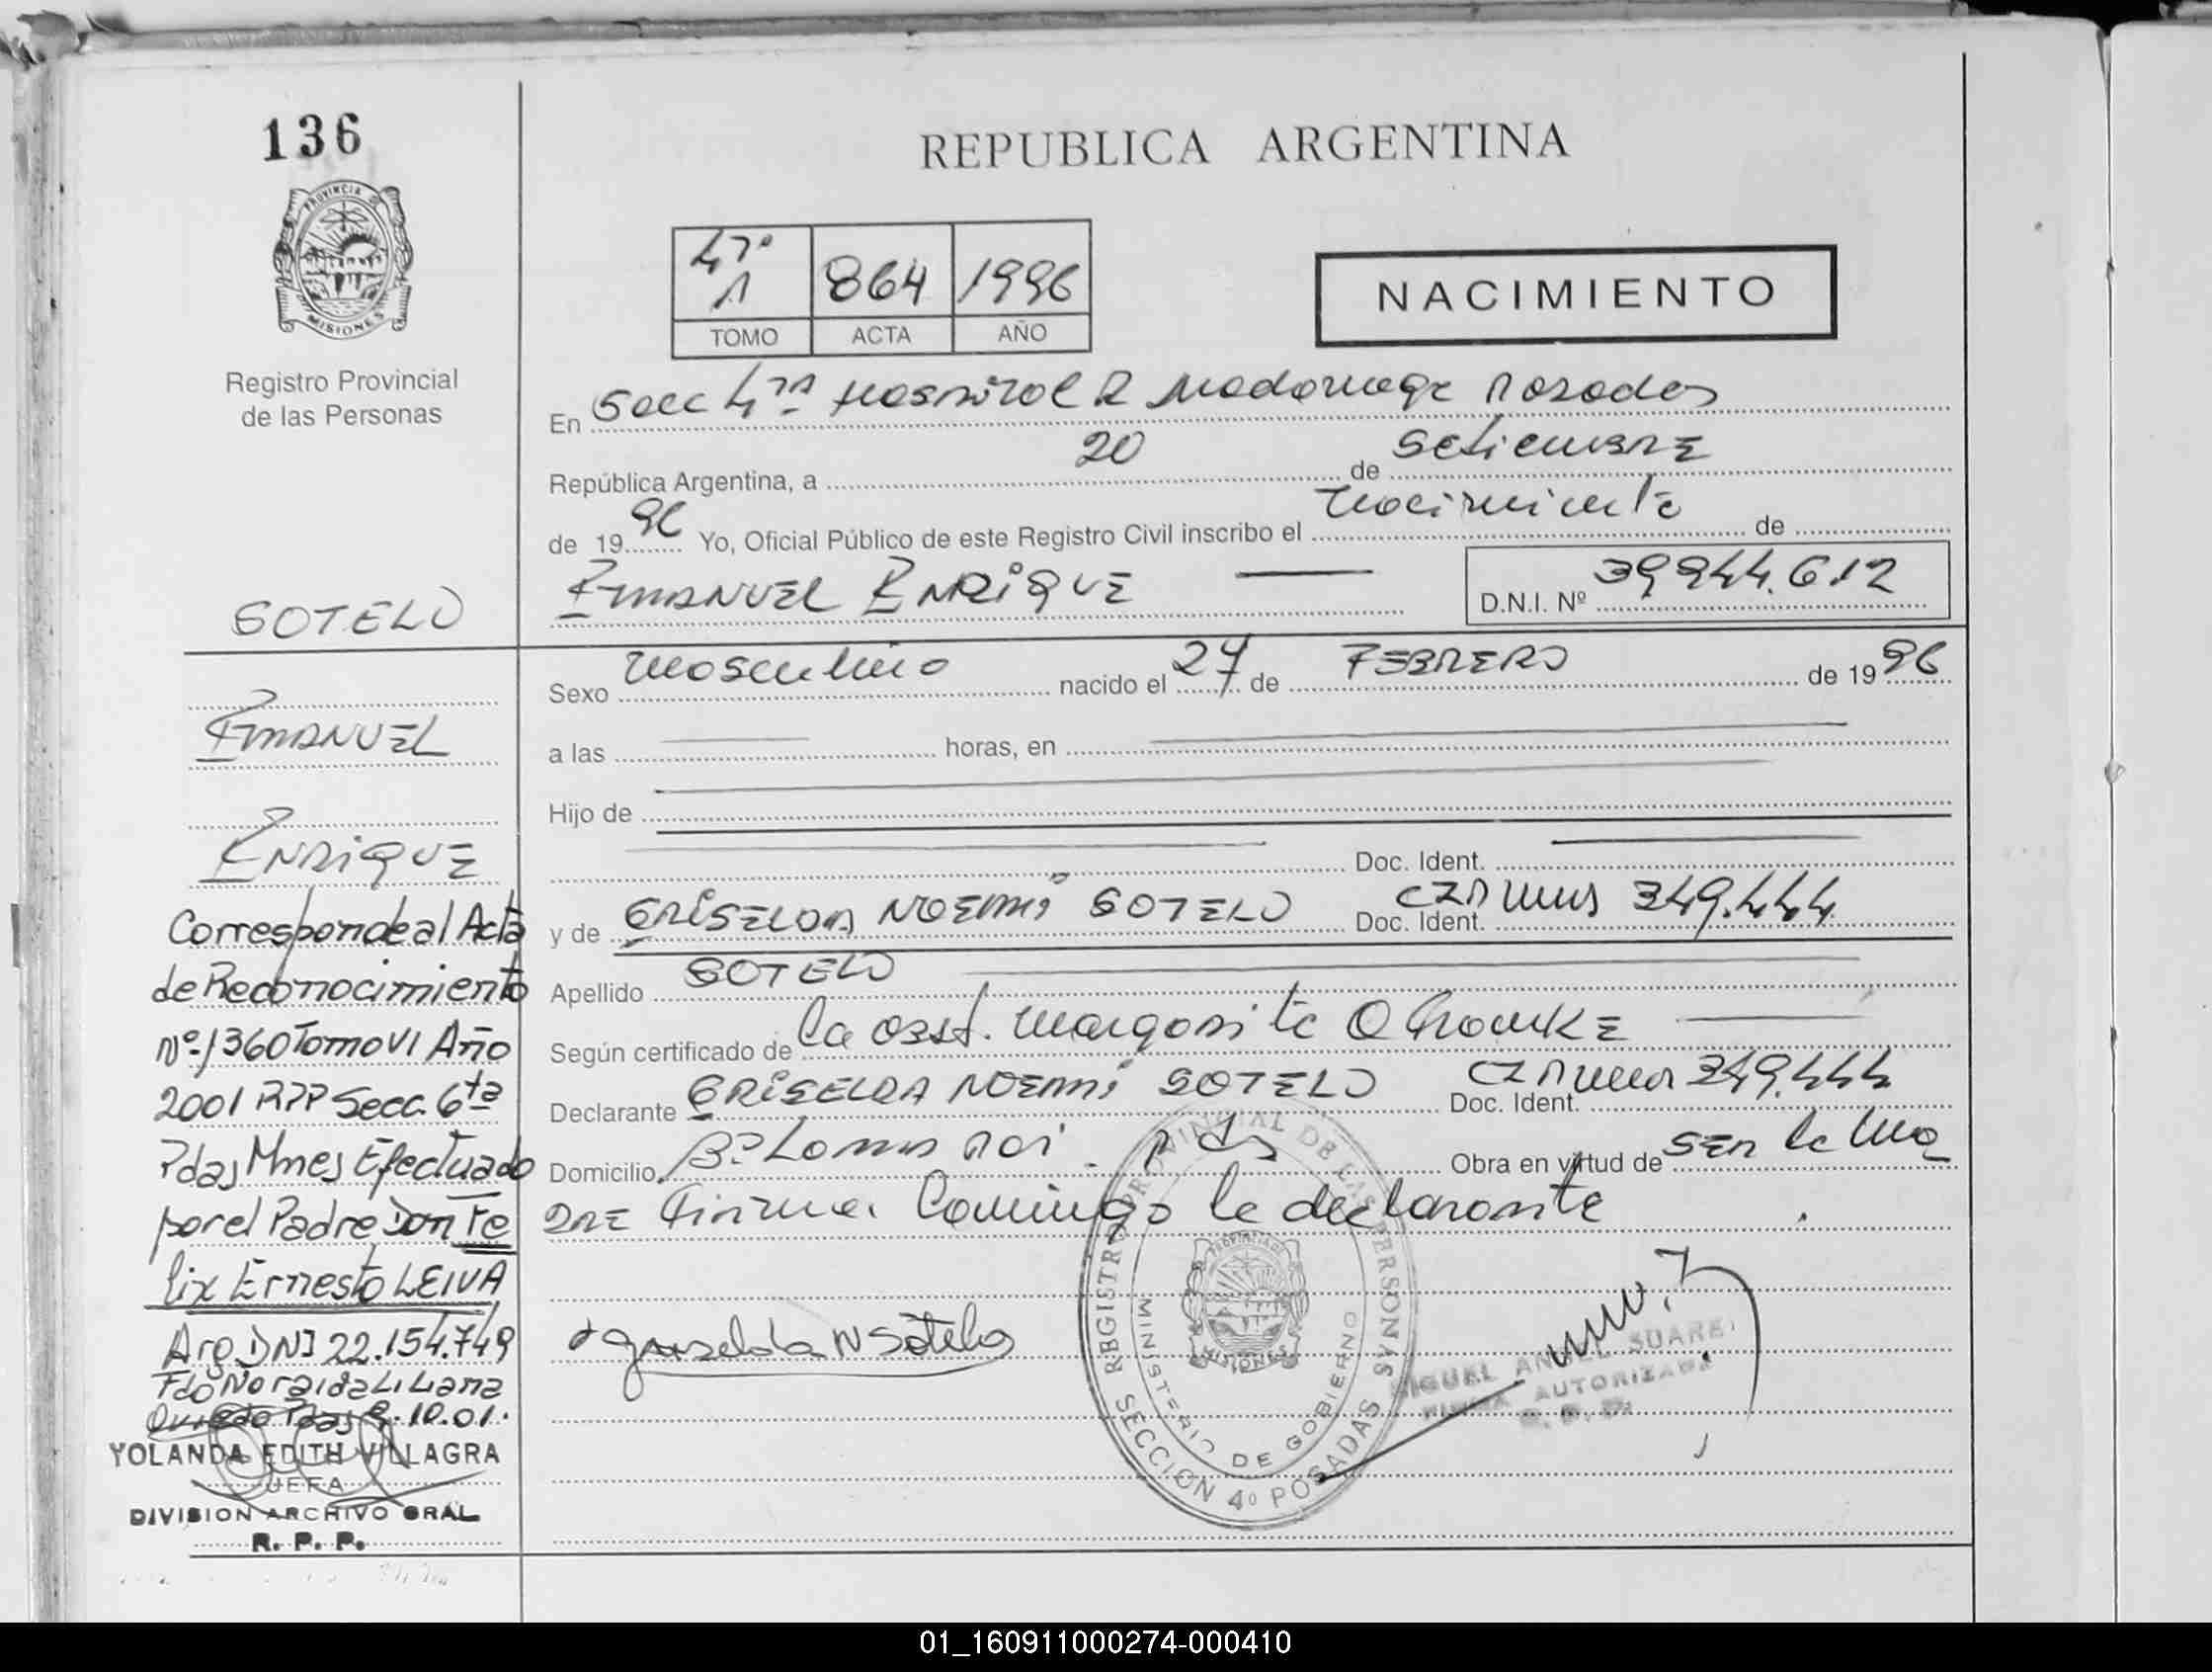 136
PROVINCIA D
MISIONES
Registro Provincial
de las Personas
SOTELO
EMANUEL
ENRIQUE
Corresponde al Acta
de Reconocimiento
Nº 1360 Tomo VI Año
2001 RPP Secc. 6ta
Pdas Mnes Efectuado
por el Padre Don Fe
lix Ernesto LEIVA
Arg DNI 22.154.749
Fdo Noraida Liliana
Oviedo Pdas 9.10.01.
YOLANDA EDITH VILLAGRA
JEFA
DIVISION ARCHIVO GRAL
R. P. P.
REPUBLICA ARGENTINA
4º 1 864 1996
TOMO ACTA AÑO
NACIMIENTO
En Secc 4ta Hospital R Madariaga Posadas
República Argentina, a 20 de Setiembre
de 1996 Yo, Oficial Público de este Registro Civil inscribo el nacimiento de
EMANUEL ENRIQUE D.N.I. Nº 39.944.612
Sexo masculino nacido el 24 de FEBRERO de 1996
a las horas, en
Hijo de
Doc. Ident.
y de GRISELDA NOEMI SOTELO Doc. Ident. 349.444
Apellido SOTELO
Según certificado de la obst. Margarita
Declarante GRISELDA NOEMI SOTELO Doc. Ident. 349.444
Domicilio Bº Pds Obra en virtud de SER la ma
DRE Firma Conmigo la declarante
Griselda N Sotelo
REGISTRO PROVINCIAL DE LAS PERSONAS
MINISTERIO DE GOBIERNO
PROVINCIA D
MISIONES
SECCION 4º POSADAS
MIGUEL ANGEL SUAREZ
FIRMA AUTORIZADA
R. P. P.
01_160911000274-000410